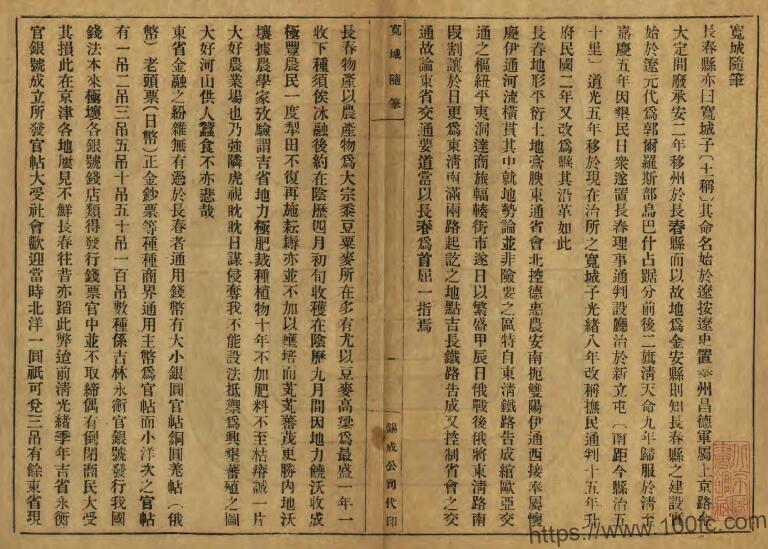 寬城隨筆
長春縣亦曰寬城子(土稱)其命名始於遼按遼史置泰州昌德軍屬上京路金
大定間廢承安二年移州於長春縣而以故地為金安縣則知長春縣之建設實
始於遼元代為郭爾羅斯部烏巴什占踞分前後二旗清天命九年歸服於清至
嘉慶五年因墾民日衆遂置長春理事通判設廳治於新立屯(南距今縣治五
十里)道光五年移於現在治所之寬城子光緒八年改稱撫民通判十五年升
府民國二年又改為縣其沿革如此
長春地形平衍土地膏腴東通省會北控德惠農安南扼雙陽伊通西接奉屬懷
慶伊通河流橫貫其中就地勢論並非險要之區特自東清鐵路告成綰歐亞交
通之樞紐平夷洞達商旅輻輳街市遂日以繁盛甲辰日俄戰後俄將東清路南
段割讓於日更為東清南滿兩路起訖之地點吉長鐵路告成又控制省會之交
通故論東省交通要道當以長春為首屈一指焉
寬城隨筆
一
錫成公司代印
長春物產以農產物為大宗黍豆粟麥所在多有尤以豆麥高粱為最盛一年一
收下種須俟冰融後約在陰歷四月初旬收穫在陰歷九月間因地力饒沃收成
極豐農民一度犁田不復再施耘耨亦並不加以壅培而芃芃蕃茂更勝內地沃
壤據農學家攷驗謂吉省地力極肥栽種植物十年不加肥料不至枯瘠誠一片
大好農業場也乃強隣虎視眈眈日謀侵奪我不能設法抵禦為興墾蕃殖之圖
大好河山供人蠶食不亦悲哉
東省金融之紛雜無有過於長春者通用錢幣有大小銀圓官帖銅圓羌帖(俄
幣)老頭票(日幣)正金鈔票等種種商界通用主幣為官帖而小洋次之官帖
有一吊二吊三吊五吊十吊五十吊一百吊數種係吉林永衡官銀號發行我國
錢法本來極壞各銀號錢店類得發行錢票官中並不取締偶有倒閉商民大受
其損此在京津各地屢見不鮮長春往昔亦蹈此弊迨前清光緒季年吉省永衡
官銀號成立所發官帖大受社會歡迎當時北洋一圓祇可兌三吊有餘東省現
https://www.100fc.com